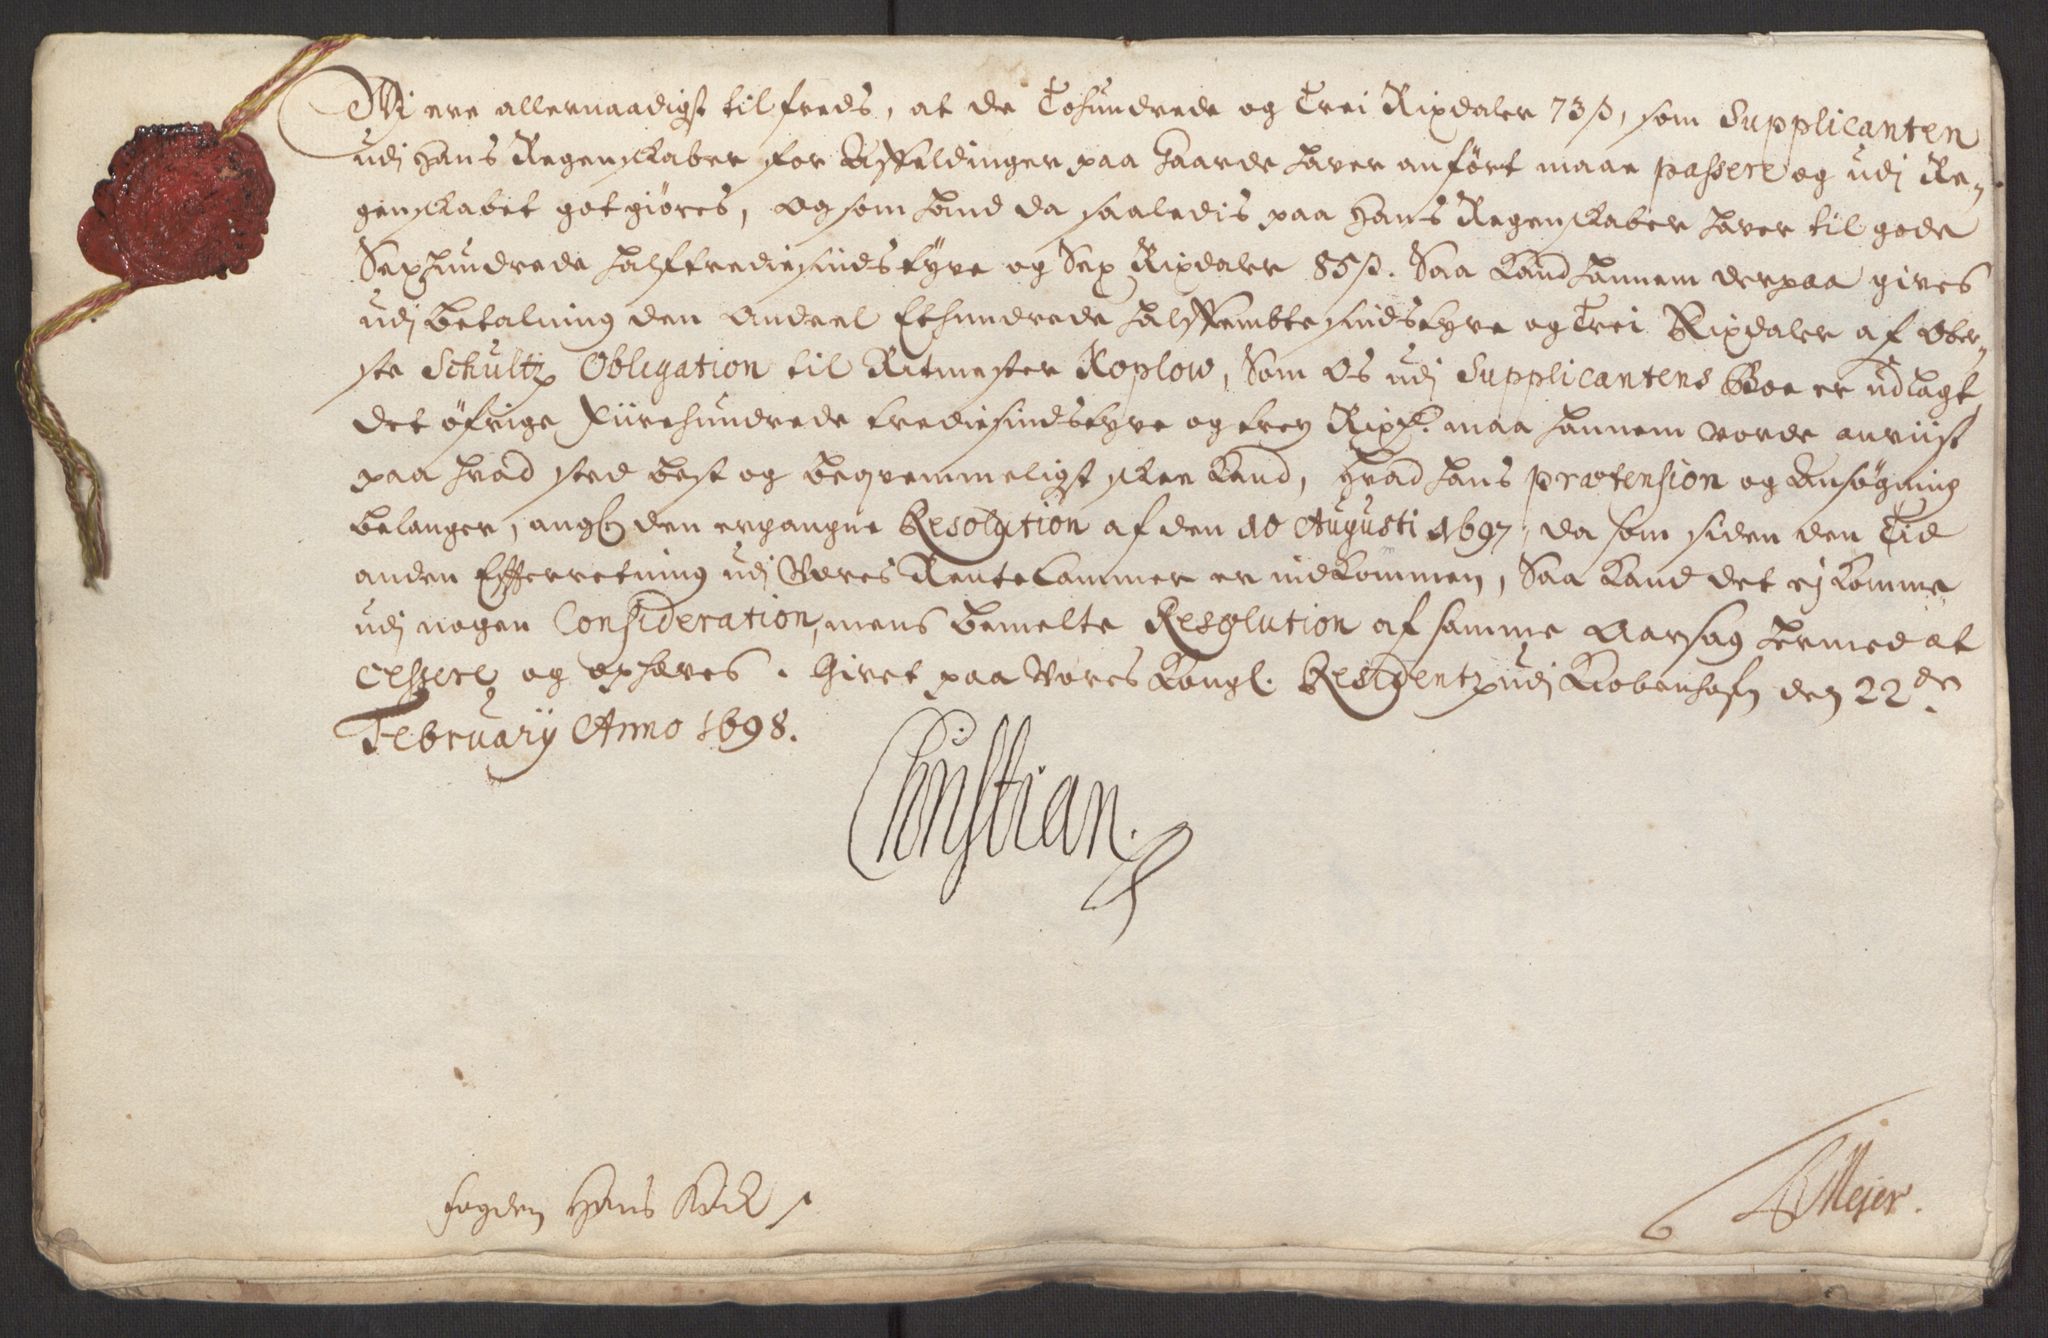 Wi ere allernaadigst tilfreds, at de Tohundrede og Trei Rixdaler 73 ß, som Supplicanten
udj hans Regenskaber for Affældinger paa Gaarde haver anført maae passere og udj Re-
genskabet got giöres, og som hand da saaledis paa hans Regenskaber haver til gode
Sexhundrede halftrediesindstyve og Sex Rixdaler 85 ß. Saa kand hannem derpaa gives
udj betalning den andeel Ethundrede halffembtesindstyve og Trei Rixdaler af Ober-
ste Schultz Obligation til Ritmester Koplow, Som Os udj Supplicantens Boe er udlagt,
det öfrige Fiirehundrede trediesindstyve og trey Rixd. maa hannem vorde anviist
paa hvad sted best og beqvemmeligst skee kand, hvad hans prætension og Ansögning
belanger, angl. den ergangne Resolution af den 10 Augusti 1697, da som siden den Tid
anden Efferretning udj Vores Rentecammer er indkommen, Saa kand det ej komme
udj nogen Consideration, mens bemelte Resolution af samme Aarsag hermed at
cessere og ophæves. Givet paa Vores Kongl. Residentz udj Kiöbenhafn den 22de
February Anno 1698.
Christian.
fogden Hans Kock
Mejer.